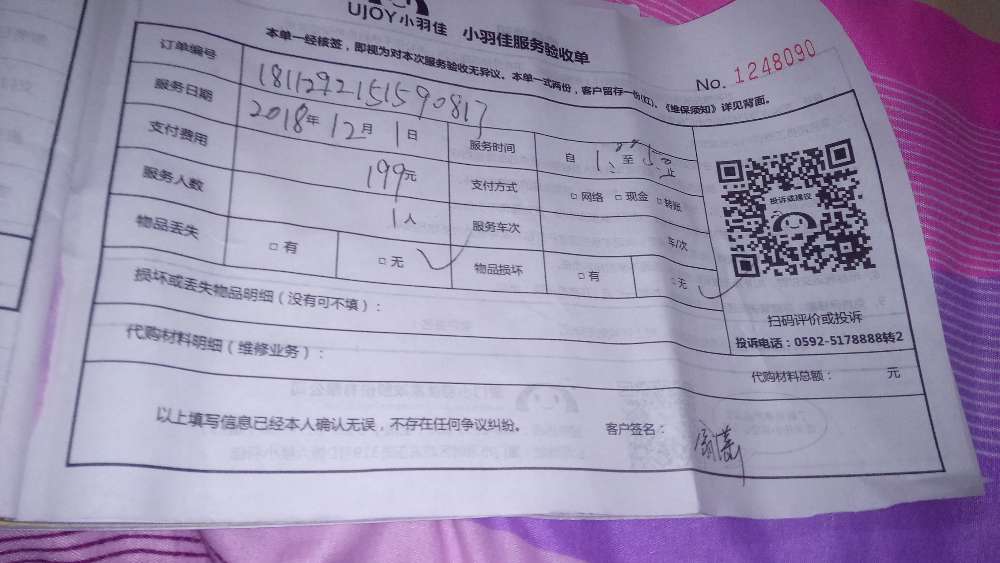 UJOY小羽佳 小羽佳服务验收单
No. 1248090
本单一经核签，即视为对本次服务验收无异议。本单一式两份，客户留存一份(红)。《维保须知》详见背面。
订单编号 1811292151590817
服务日期 2018年 12月 1日 服务时间 自 至 止
支付费用 199元 支付方式 □ 网络 □ 现金 □ 转账
服务人数 1人 服务车次 车/次
物品丢失 □ 有 □ 无 物品损坏 □ 有 □ 无
投诉或建议
扫码评价或投诉
投诉电话：0592-5178888转2
损坏或丢失物品明细（没有可不填）：
代购材料明细（维修业务）：
代购材料总额： 元
以上填写信息已经本人确认无误，不存在任何争议纠纷。 客户签名：